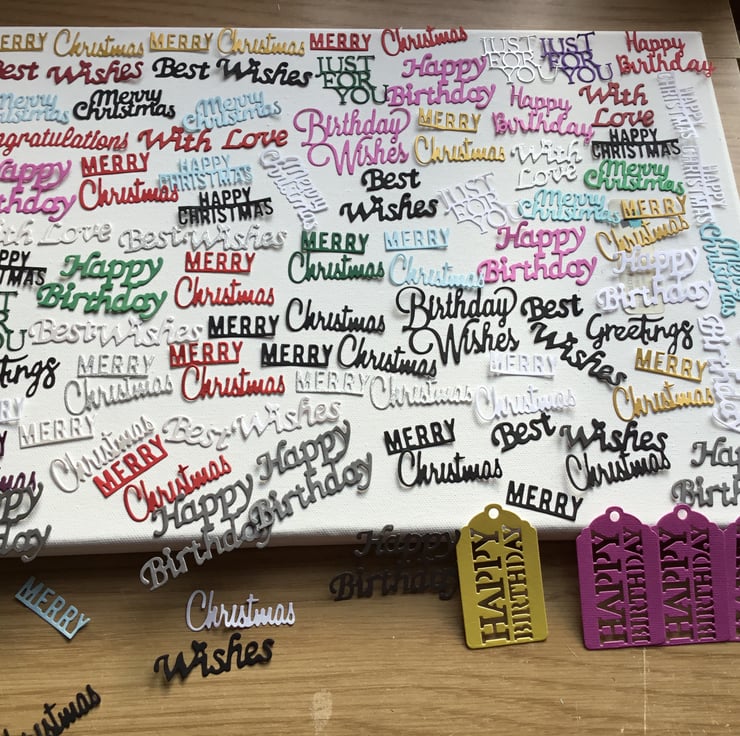 MERRY Christmas MERRY Christmas MERRY Christmas
JUST
FOR
YOU
JUST
FOR
YOU
Happy
Birthday
Best Wishes Best Wishes
JUST
FOR
YOU
Happy
Birthday
Merry
Christmas
Merry
Christmas
Merry
Christmas
Happy
Birthday
With
Love
HAPPY
CHRISTMAS
With Love
Birthday
Wishes
MERRY
Christmas
With
Love
HAPPY
CHRISTMAS
Merry
Christmas
Happy
Birthday
MERRY
Christmas
HAPPY
CHRISTMAS
HAPPY
CHRISTMAS
Merry
Christmas
Best
Wishes
JUST
FOR
YOU
Merry
Christmas
MERRY
Christmas
With Love
Best Wishes
MERRY
Christmas
MERRY
Christmas
Happy
Birthday
Happy
Birthday
Merry
Christmas
Happy
Birthday
MERRY
Christmas
MERRY Christmas
Birthday
Wishes
Best
Wishes
Greetings
Birthday
Best Wishes
MERRY
Christmas
MERRY
Christmas
MERRY Christmas
MERRY
Christmas
MERRY
Christmas
MERRY
Christmas
MERRY
Christmas
MERRY
Christmas
Best Wishes
Happy
Birthday
Happy
Birthday
MERRY
Christmas
Best Wishes
Christmas
MERRY
Happy
Birthday
HAPPY
BIRTHDAY
HAPPY
BIRTHDAY
HAPPY
BIRTHDAY
MERRY
Christmas
Wishes